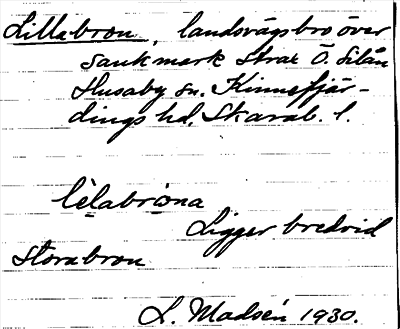 Lillabron, landsvägsbro över
sankmark strax Ö. Silån
Husaby sn. Kinnefjär-
dings hd. Skarab. l.
lèlabròna
Ligger bredvid
Storabron
L. Madsén 1930.